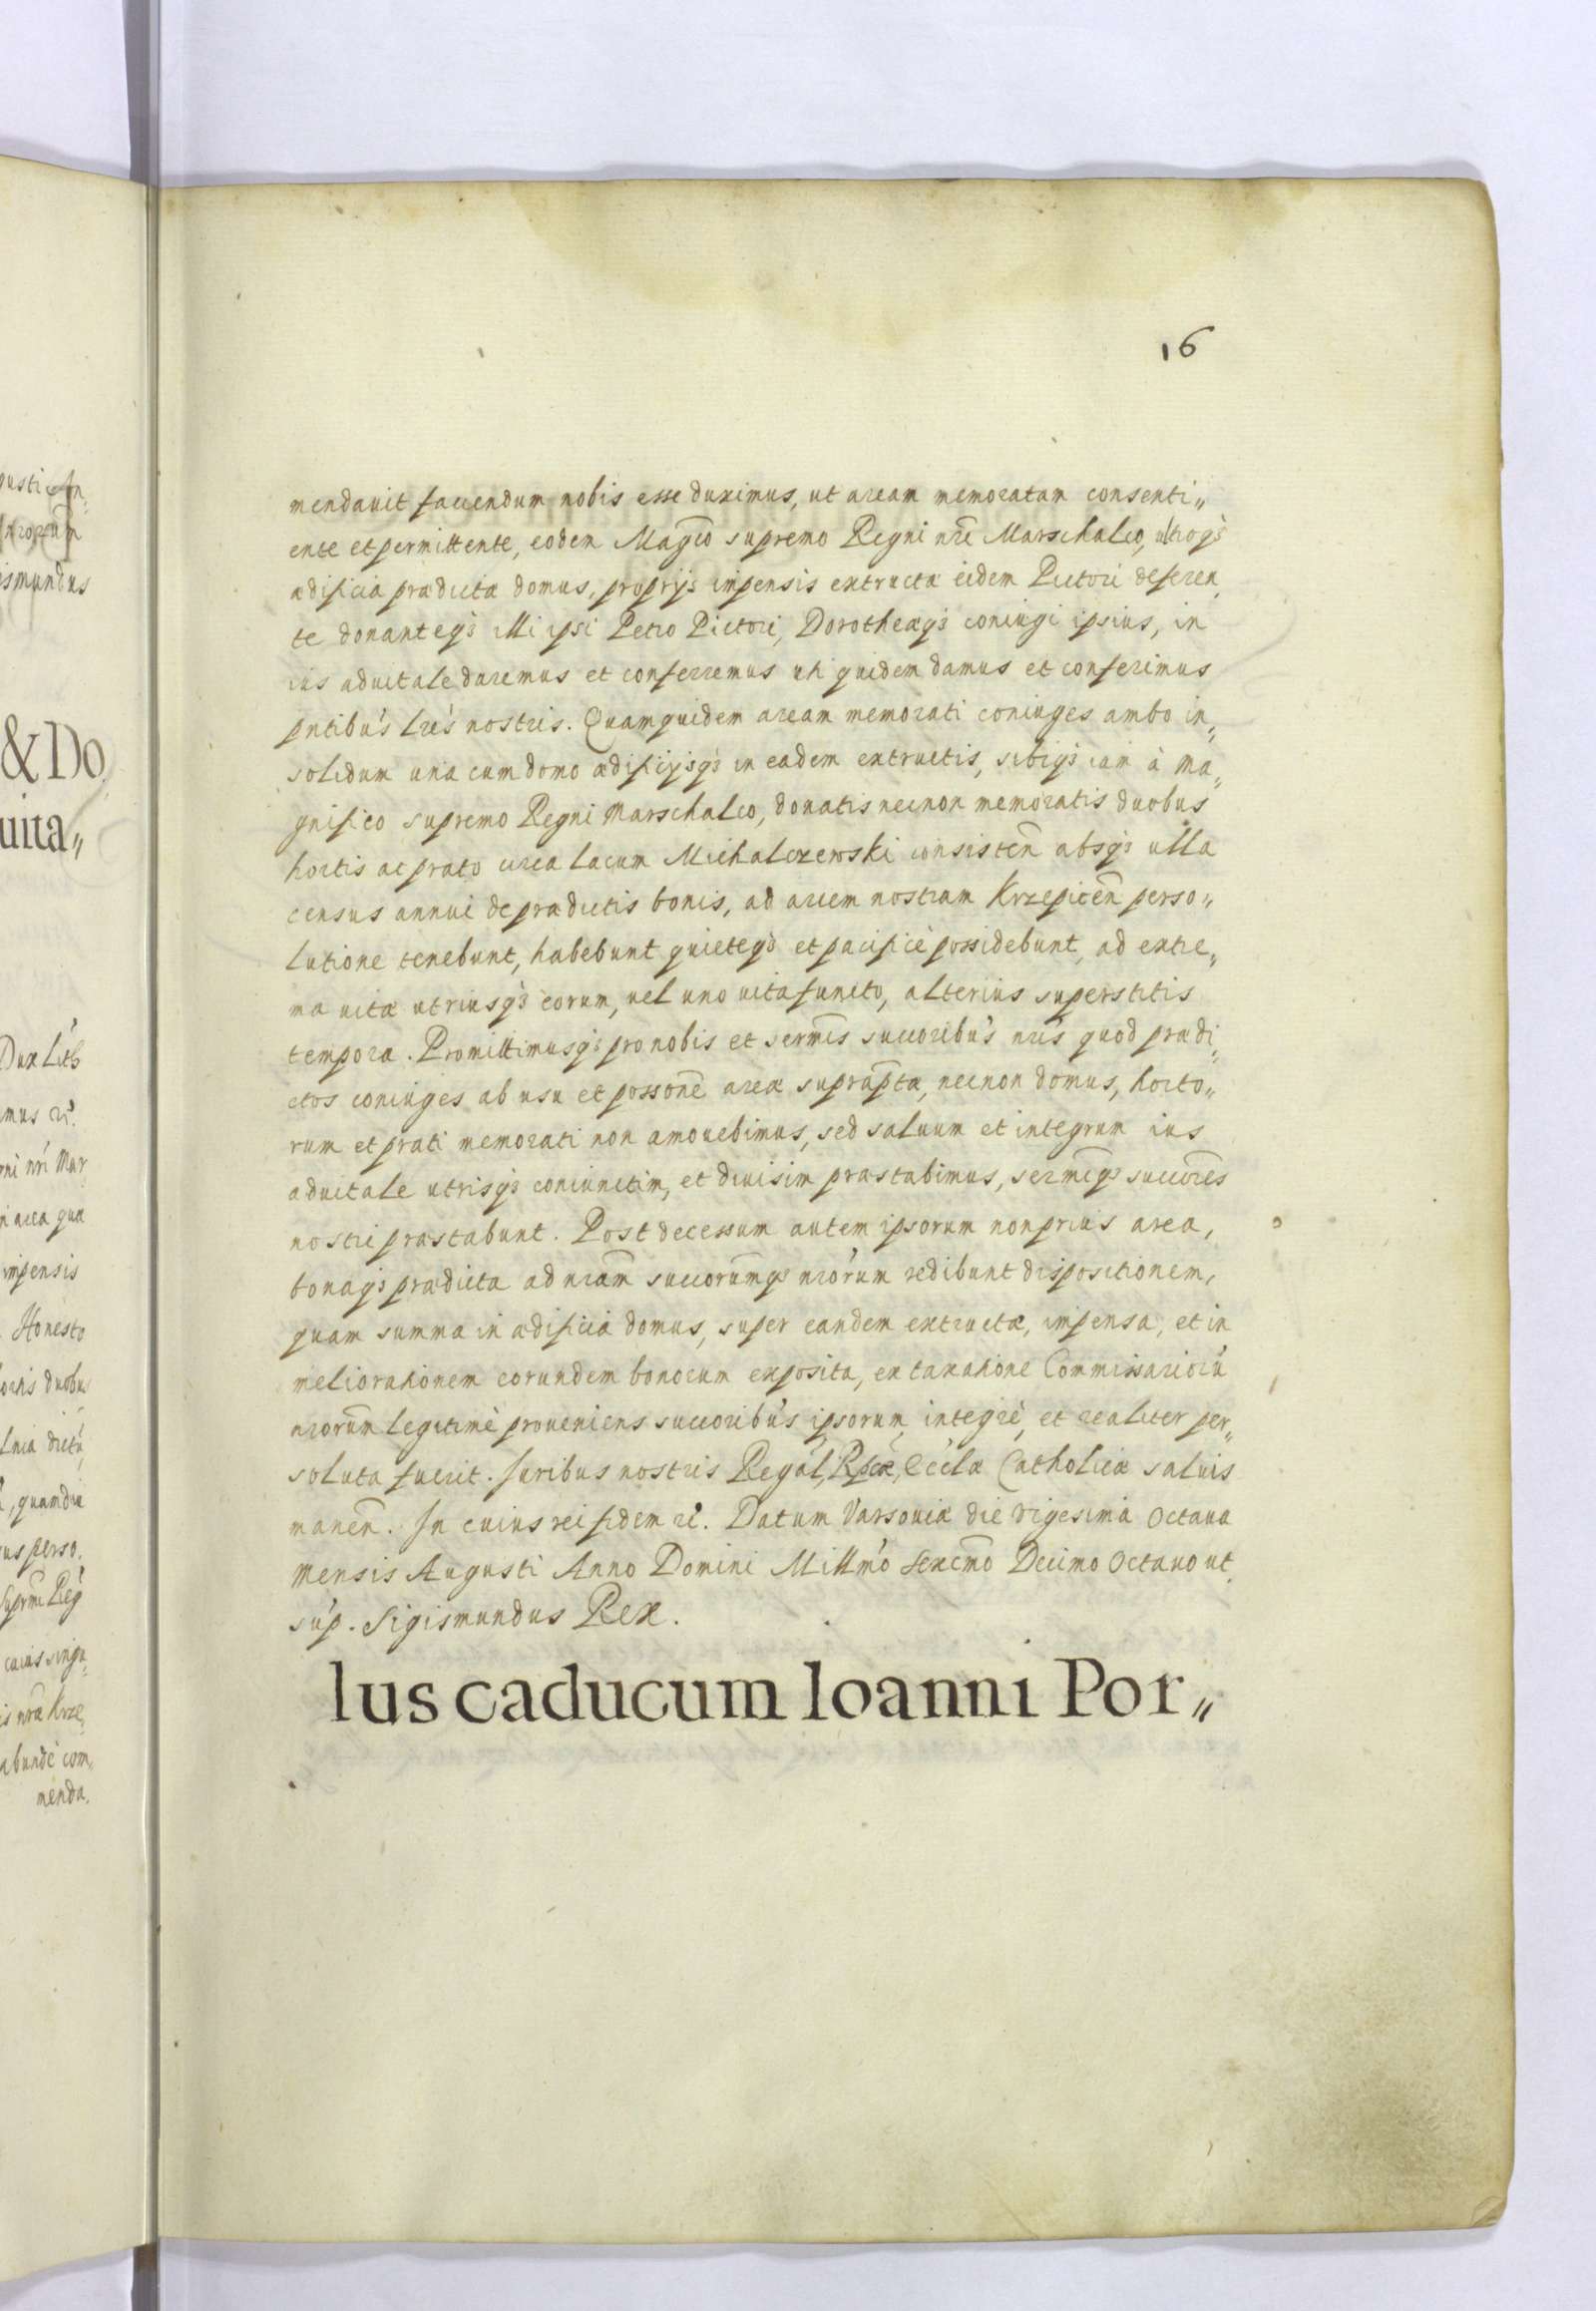 16
mendauit faciendum nobis esse duximus, ut aream memoratam consenti„
ente et permittente, eodem Magco supremo Regni nri Marschalco, ultroq3
ædificia prædictæ domus, proprijs impensis extructæ eidem Pictori deferen„
te donanteq3 illi ipsi Petro Pictori, Dorotheæq3 coniugi ipsius, in
ius aduitale daremus et conferremus uti quidem damus et conferimus
pntibus lris nostris. Quamquidem aream memorati coniuges ambo in„
solidum una cum domo ædificijsq3 in eadem extructis, sibiq3 iam à Ma„
gnifico supremo Regni Marschalco, donatis necnon memoratis duobus
hortis ac prato circa lacum Michalczewski consisten absq3 ulla
census annui de prædictis bonis, ad arcem nostram Krzepicen perso„
lutione tenebunt, habebunt quieteq3 et pacificè possidebunt, ad extre„
ma uitæ utriusq3 eorum, uel uno uita functo, alterius superstitis
tempora. Promittimusq3 pro nobis et sermis succoribus nris quod prædi„
ctos coniuges ab usu et possone areæ supraptæ, necnon domus, horto„
rum et prati memorati non amouebimus, sed saluum et integrum ius
aduitale utrisq3 coniunctim, et diuisim præstabimus, sermiq3 succores
nostri præstabunt. Post decessum autem ipsorum non prius area,
bonaq3 prædicta ad nram succorumq3 nrorum redibunt dispositionem,
quam summa in ædificia domus, super eandem extructæ, impensa, et in
meliorationem eorundem bonorum exposita, ex taxatione Commissarioru
nrorum legitimè proueniens succoribus ipsorum, integrè, et realiter per„
soluta fuerit. Iuribus nostris Regal, Rpcæ, Eccłæ Catholicæ saluis
manen. In cuius rei fidem rc. Datum Varsouiæ die vigesima Octaua
Mensis Augusti Anno Domini Millmo sexcmo Decimo Octauo ut
sup. Sigismundus Rex.
Ius caducum Ioanni Por„